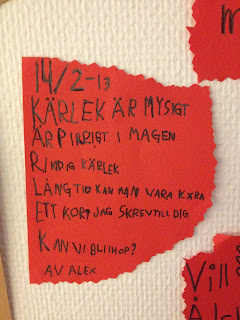 14/2-13
KÄRLEK ÄR MYSIGT
ÄR PIRRIGT I MAGEN
KÄRLEK
LÅNG TID KAN MAN VARA KÄRA
ETT KORT JAG SKREV TILL DIG
KAN VI BLI IHOP?
AV ALEX
Vill